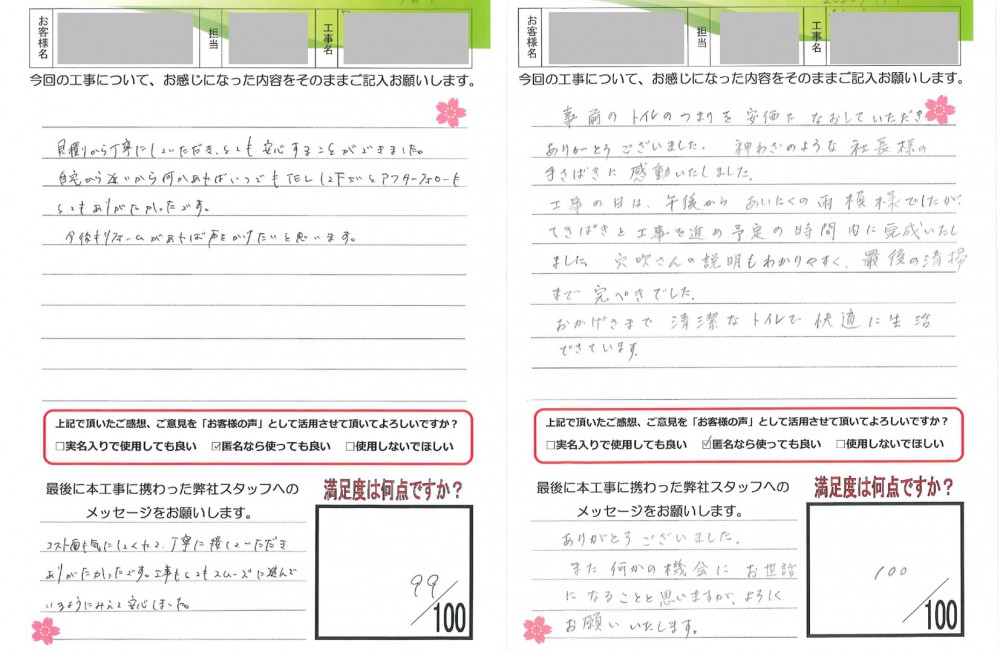 お客様名
担当
工事名
今回の工事について、お感じになった内容をそのままご記入お願いします。
見積りから丁寧にしていただき、とても安心することができました。
自宅から近いから何かあればいつでもTELして下さいとアフターフォローも
とてもありがたかったです。
今後もリフォームがあれば声をかけたいと思います。
上記で頂いたご感想、ご意見を「お客様の声」として活用させて頂いてよろしいですか？
□実名入りで使用しても良い ☑匿名なら使っても良い □使用しないでほしい
最後に本工事に携わった弊社スタッフへの
メッセージをお願いします。
コスト面も気にしてくれて、丁寧に接していただき
ありがたかったです。工事もとてもスムーズに進んで
いるようにみえて安心しました。
満足度は何点ですか？
99/100
お客様名
担当
工事名
今回の工事について、お感じになった内容をそのままご記入お願いします。
事前のトイレのつまりを安価でなおしていただき
ありがとうございました。神わざのような社長様の
手さばきに感動いたしました。
工事の日は、午後からあいにくの雨模様でしたが、
てきぱきと工事を進め予定の時間内に完成いたし
ました。穴吹さんの説明もわかりやすく、最後の清掃
まで完ぺきでした。
おかげさまで清潔なトイレで快適に生活
できています。
上記で頂いたご感想、ご意見を「お客様の声」として活用させて頂いてよろしいですか？
□実名入りで使用しても良い ☑匿名なら使っても良い □使用しないでほしい
最後に本工事に携わった弊社スタッフへの
メッセージをお願いします。
ありがとうございました。
また何かの機会にお世話
になることと思いますが、よろしく
お願いいたします。
満足度は何点ですか？
100/100